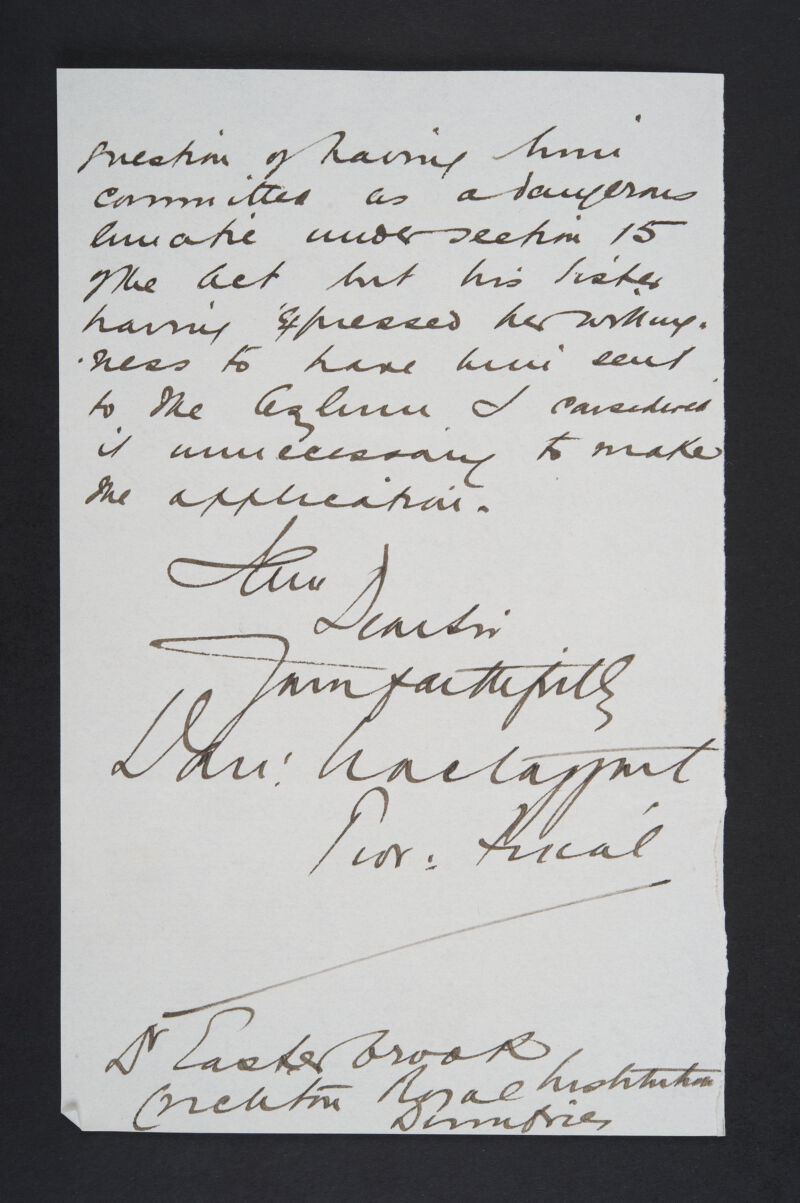 question of having him
committed as a dangerous
lunatic under section 15
of the Act but his sister
having expressed her willing-
-ness to have him sent
to the Asylum I considered
it unnecessary to make
the application.
I am
Dear Sir
Yours faithfully
Davi: Mactaggart
Pror: Fiscal
Dr Easterbrook
Crichton Royal Institution
Dumfries